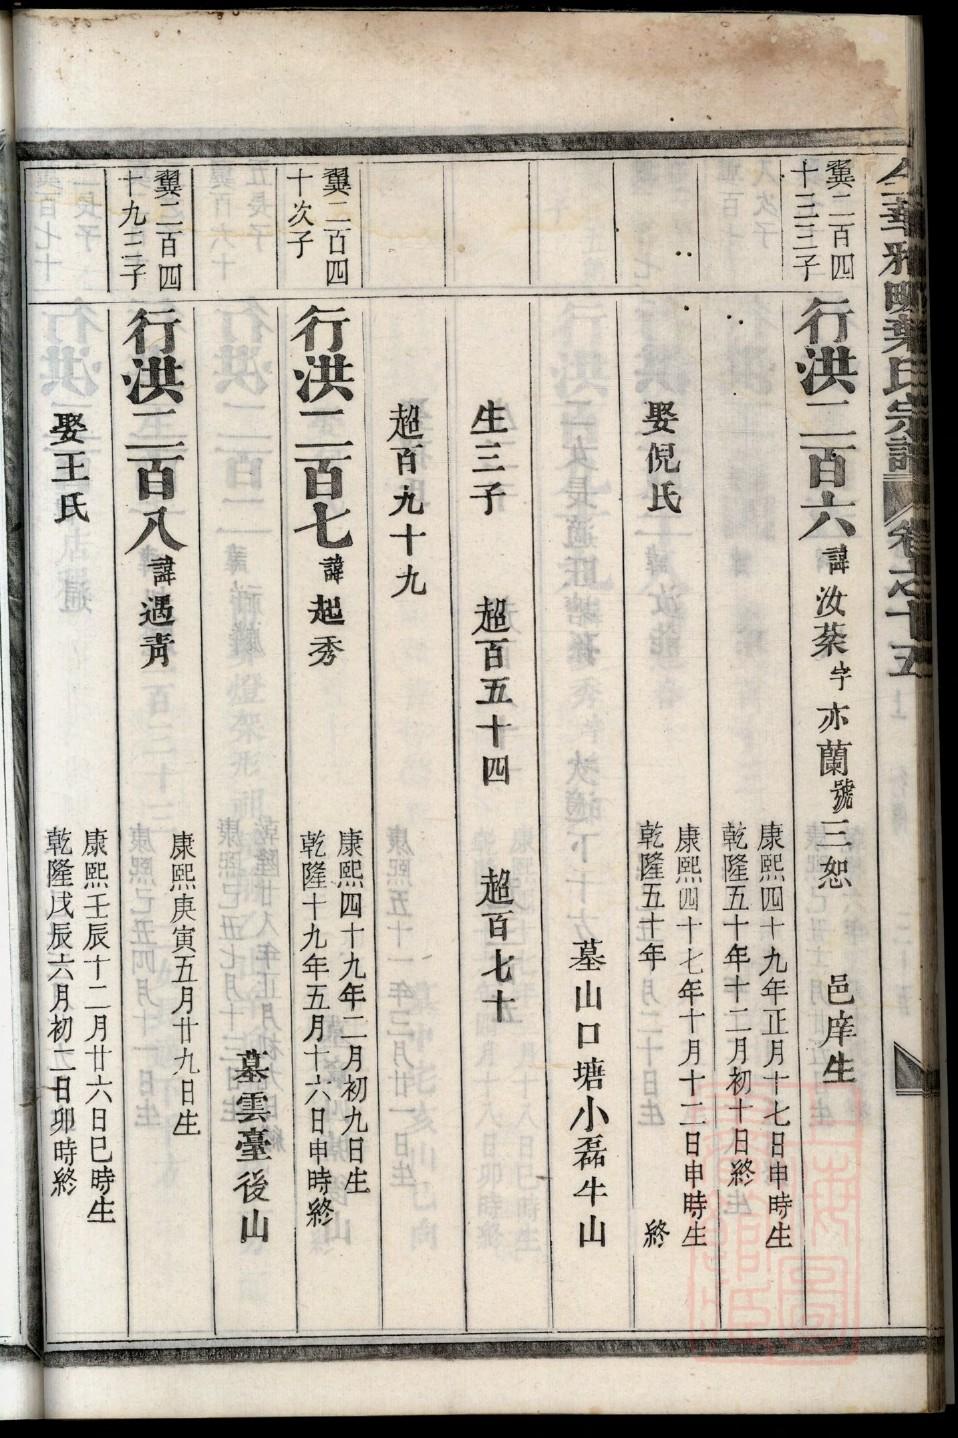 金華雅畈葉氏宗譜 卷之十五
翼二百四
十三三子
行洪二百六 諱汝棻字亦蘭號三恕 邑庠生
康熙四十九年正月十七日申時生
乾隆五十年十二月初十日終
娶倪氏
康熙四十七年十月十二日申時生
乾隆五十年 終
墓山口塘小磊牛山
生三子 超百五十四 超百七十
超百九十九
翼二百四
十次子
行洪二百七 諱起秀
康熙四十九年二月初九日生
乾隆十九年五月十六日申時終
墓雲臺後山
翼二百四
十九三子
行洪二百八 諱遇青
康熙庚寅五月廿九日生
娶王氏
康熙壬辰十二月廿六日巳時生
乾隆戊辰六月初二日卯時終